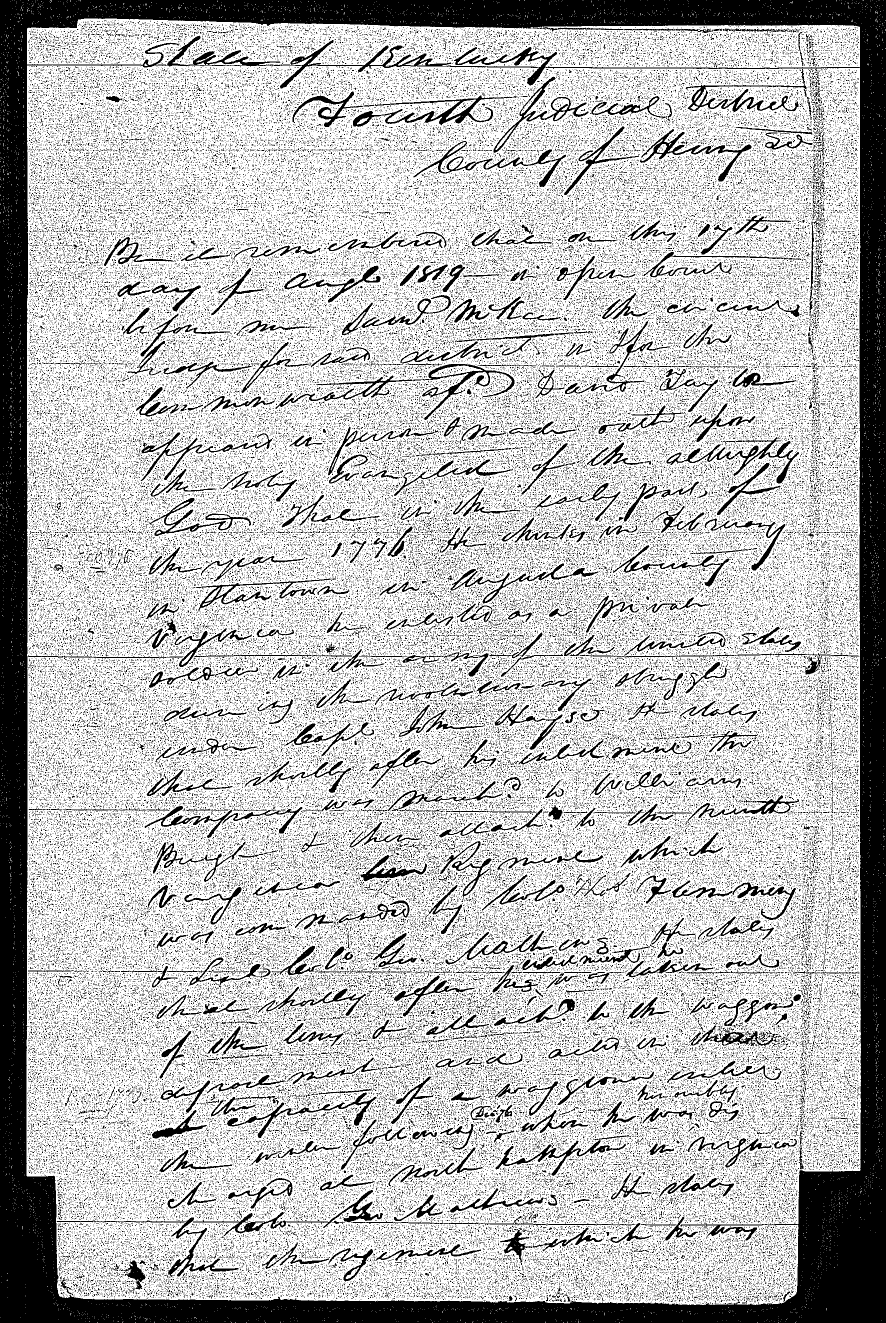 State of Kentucky
Fourth Judicial District
County of Henry
Be it remembered that on this 17th
day of Augt 1819 in open Court
before me Saml. McKee the circuit
Judge for said district in & for the
Commonwealth afsd. David Taylor
appeared in person & made oath upon
the holy Evangelist of the allmighty
God That in the early part of
the year 1776 He thinks in February
in Stantown in Augusta County
Virginia he enlisted as a private
soldier in the army of the united states
during the revolutionary struggle
under Capt. John Hayse He states
that shortly after his enlistment the
Company was marchd. to Williams
Burgh & then attachd. to the Nineth
Virginia Regiment which
was commanded by Colo. Thos Flemming
& Liut Colo. Geo. Mathews He states
that shortly after his enlistment he was taken out
of the line & attachd. to the waggon
department and acted in
the capacity of a waggoner untill
the winter following Decr 76 when he was honorably dis
charged at North hampton in Virginia
by Colo. Geo Mathews – He states
that the regiment to which he was